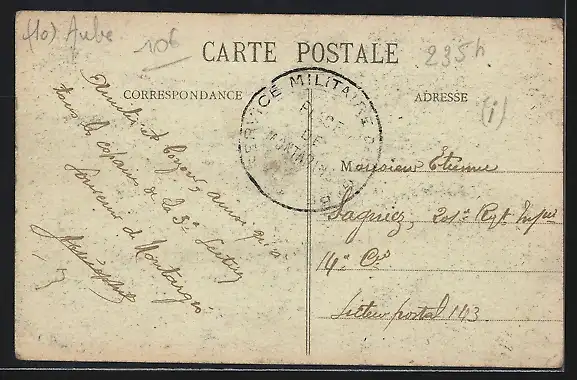 (10) Aube
106
235h
CARTE POSTALE
CORRESPONDANCE
ADRESSE
(i)
SERVICE MILITAIRE
PLACE
DE
MONTARGIS
Amitiés et bonjour, ainsi qu'à
tous les copains de la 3e Section
Souvenir de Montargis
Monsieur Étienne
Lagniez, 201e Rgt Infrie
14e Cie
Secteur postal 143